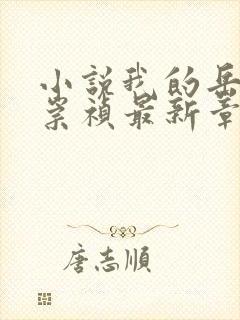 小說我的岳
崇禎最新章
唐志順